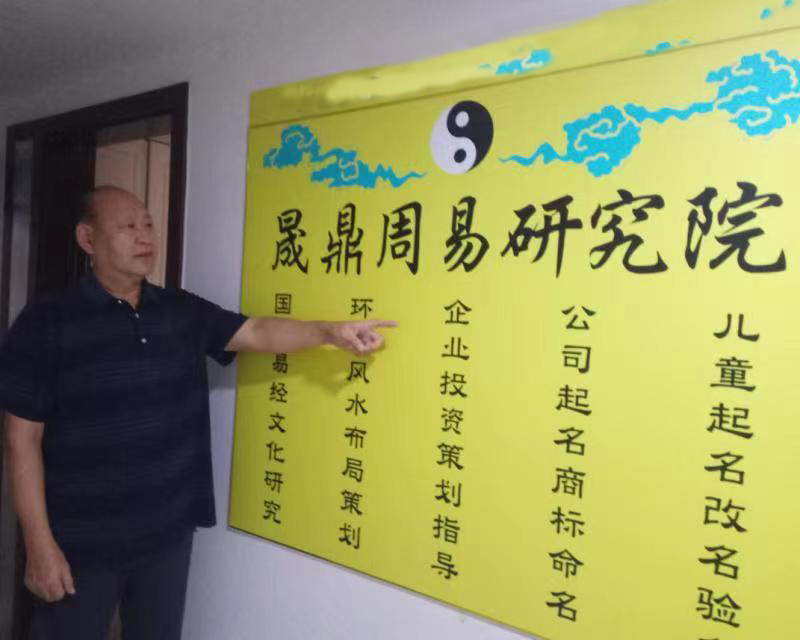 晟鼎周易研究院
国
易经文化研究
环
风水布局策划
企业投资策划指导
公司起名商标命名
儿童起名改名验